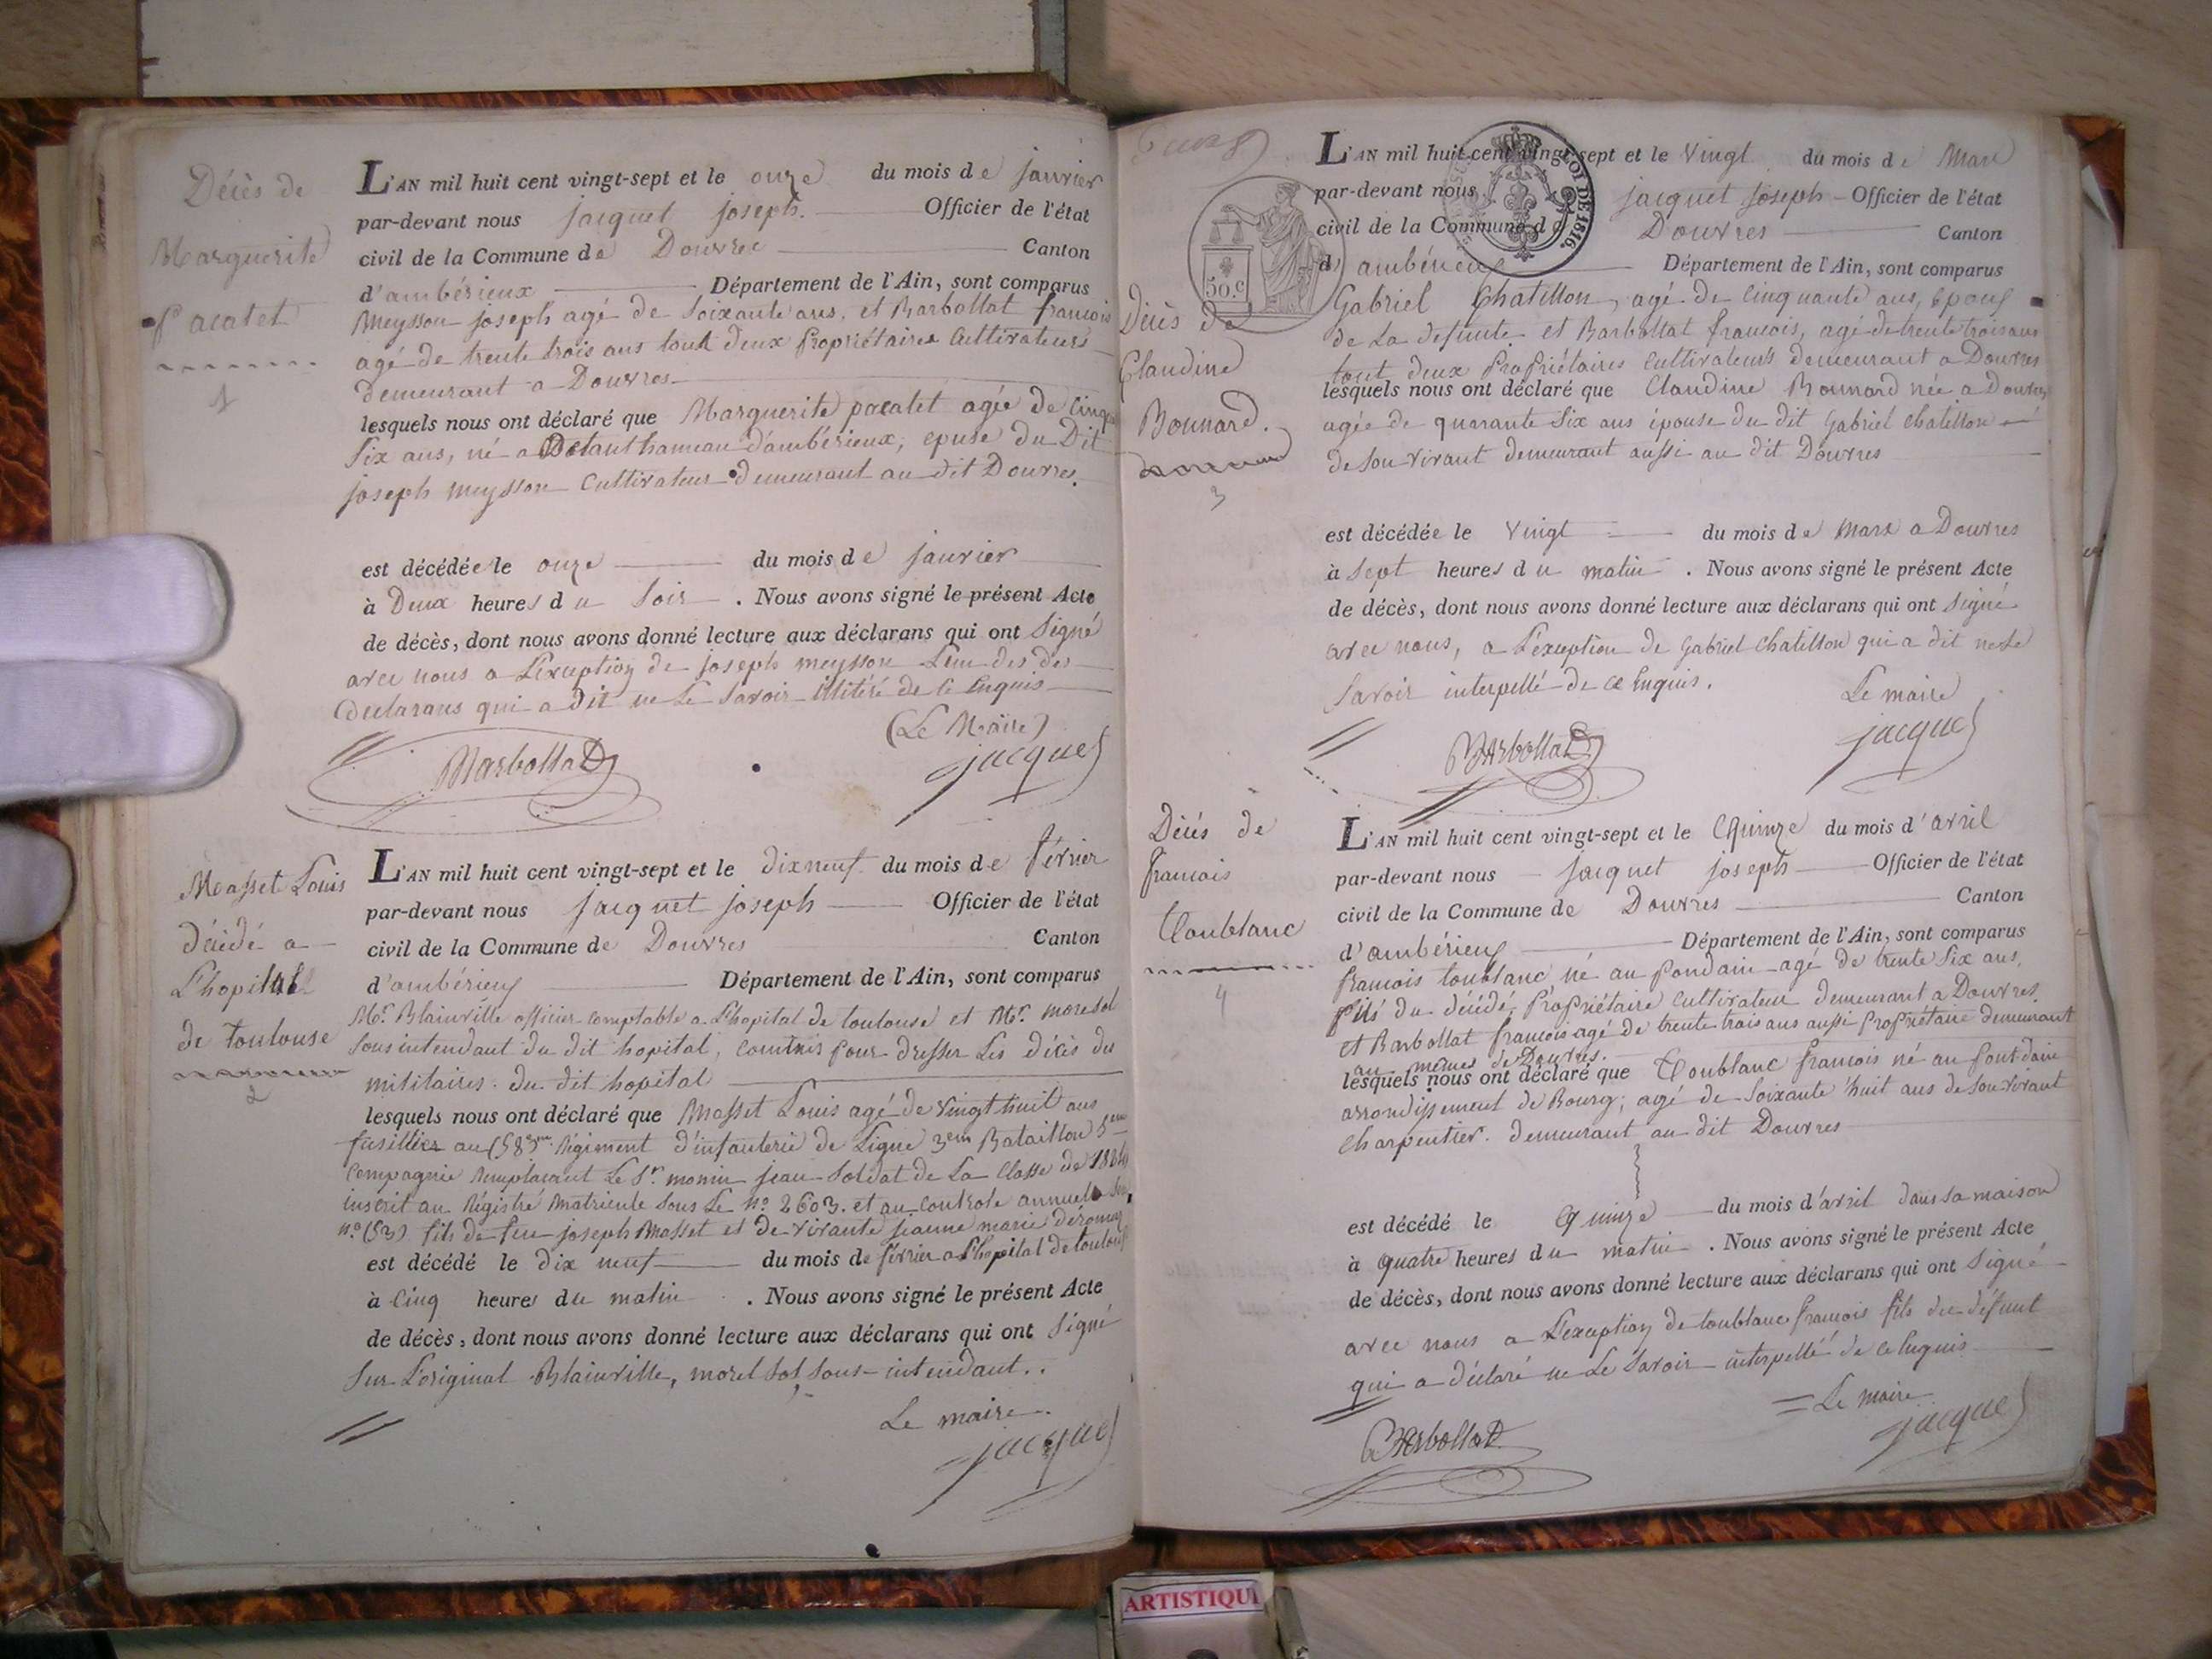 Décès de
Marguerite
pacatet
1
L'AN mil huit cent vingt-sept et le onze du mois de janvier
par-devant nous jacquet joseph. Officier de l'état
civil de la Commune de Douvres Canton
d'ambérieux Département de l'Ain, sont comparus
Meysson joseph agé de Soixante ans, et Barbollat francois
agé de trente trois ans tout deux Propriétaires Cultivateurs
demeurant a Douvres
lesquels nous ont déclaré que Marguerite pacatet agée de Cinqu
Six ans, né a hameau d'ambérieux, epuse du Dit
joseph meysson Cultivateur demeurant au dit Douvres.
est décédée le onze du mois de janvier
à Deux heures du Soir . Nous avons signé le présent Acte
de décès, dont nous avons donné lecture aux déclarans qui ont Signé
avec nous a L'exception de joseph meysson L'un des des
declarans qui a dit ne Le Savoir de ce Enquis
(Le Maire)
Barbollat
jacquet
Masset Louis
décédé a
L'hopital
de toulouse
2
L'AN mil huit cent vingt-sept et le dix neuf du mois de février
par-devant nous jacquet joseph Officier de l'état
civil de la Commune de Douvres Canton
d'ambérieux Département de l'Ain, sont comparus
Mr. Blainville officier comptable a L'hopital de toulouse et Mr. morel sol
Sous intendant du dit hopital, commis pour dresser Les décès des
militaires du dit hopital
lesquels nous ont déclaré que Masset Louis agé de Vingt huit ans
fusillier au Régiment d'infanterie de Ligne 3em Bataillon 5em
Compagnie Remplacant Le Sr. monin jean Soldat de La Classe de
inscrit au Régistré Matricule Sous Le no. 2603. et au Controle annuel
no. (53) fils de feu joseph Masset et de vivante jeanne marie
est décédé le dix neuf du mois de février a L'hopital de toulouse
à Cinq heures du matin . Nous avons signé le présent Acte
de décès, dont nous avons donné lecture aux déclarans qui ont Signé
Sur L'original Blainville, morel sol, Sous-intendant.
Le maire
jacquet
L'AN mil huit cent vingt-sept et le Vingt du mois de Mars
par-devant nous jacquet joseph Officier de l'état
civil de la Commune de Douvres Canton
d'ambérieux Département de l'Ain, sont comparus
LOI DE 1816.
50.c
Décès de
Claudine
Bonnard.
3
Gabriel Chatillon, agé de Cinquante ans, Epoux
de La defunte et Barbollat francois, agé de trente trois ans
tout deux Propriétaires Cultivateurs demeurant a Douvres
lesquels nous ont déclaré que Claudine Bonnard née a Douvres
agée de quarante Six ans épouse du dit Gabriel Chatillon
de Son vivant demeurant aussi au dit Douvres
est décédée le Vingt du mois de Mars a Douvres
à Sept heures du matin . Nous avons signé le présent Acte
de décès, dont nous avons donné lecture aux déclarans qui ont Signé
avec nous, a L'exception de Gabriel Chatillon qui a dit ne Le
Savoir interpellé de ce Enquis.
Le maire
Barbollat
jacquet
Décés de
francois
Toublanc
4
L'AN mil huit cent vingt-sept et le Quinze du mois d'avril
par-devant nous jacquet joseph Officier de l'état
civil de la Commune de Douvres Canton
d'ambérieux Département de l'Ain, sont comparus
francois toublanc né au Pondain agé de trente Six ans,
fils du décédé, Propriétaire Cultivateur demeurant a Douvres.
et Barbollat francois agé de trente trois ans aussi Propriétaire demeurant
au mêmes de Douvres.
lesquels nous ont déclaré que Toublanc francois né au Pont dain
arrondissement de Bourg; agé de Soixante huit ans de Son vivant
Charpentier. demeurant au dit Douvres
est décédé le Quinze du mois d'avril dans sa maison
à quatre heures du matin . Nous avons signé le présent Acte
de décès, dont nous avons donné lecture aux déclarans qui ont Signé
avec nous a L'exception de toublanc francois fils du défunt
qui a déclaré ne Le Savoir interpellé de ce Enquis
Le maire
Barbollat
jacquet
ARTISTIQU